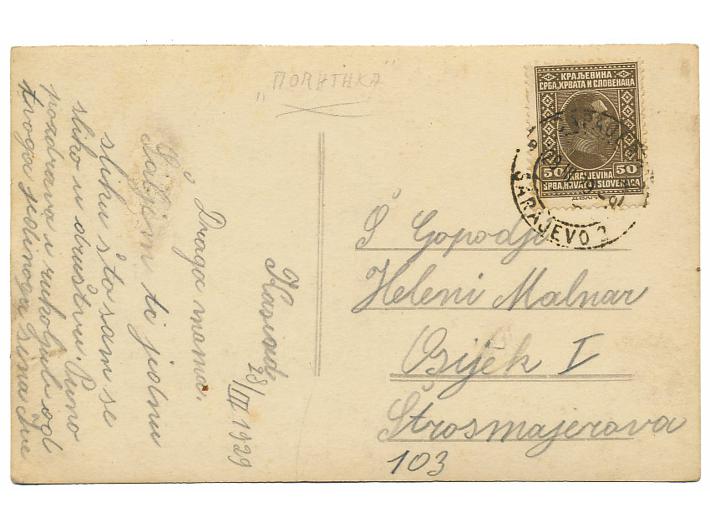 „ПОЛИТИКА"
КРАЉЕВИНА
СРБА, ХРВАТА И СЛОВЕНАЦА
50 50
KRALJEVINA
SRBA, HRVATA I SLOVENACA
SARAJEVO 2
28/III 1929
Draga mama,
Šaljem ti jednu
sliku što sam se
sliko u društvu. Puno
pozdrava i rukoljub od
tvoga jedinoga sina Ive
Gopodja
Heleni Malnar
Osijek I
Štrosmajerova
103